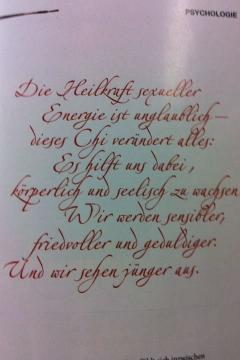 PSYCHOLOGIE
Die Heilkraft sexueller
Energie ist unglaublich –
dieses Chi verändert alles:
Es hilft uns dabei,
körperlich und seelisch zu wachsen
Wir werden sensibler,
friedvoller und geduldiger.
Und wir sehen jünger aus.